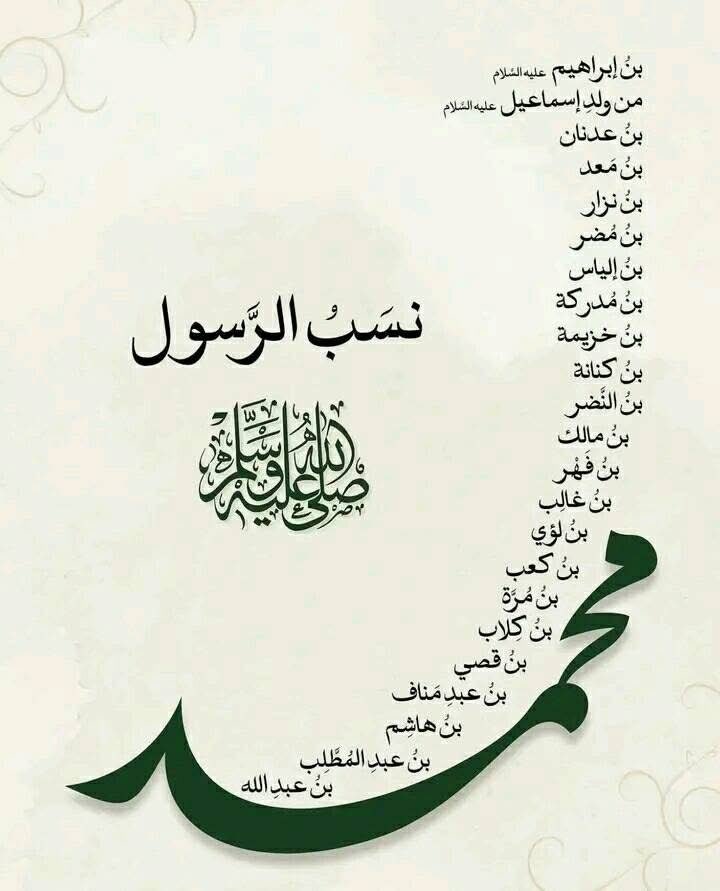 نسَبُ الرَّسول
صلى الله عليه وسلم
محمد
بنُ عبدِ الله
بنُ عبدِ المُطَّلِب
بنُ هاشِم
بنُ عبدِ مَناف
بنُ قصي
بنُ كِلاب
بنُ مُرَّة
بنُ كعب
بنُ لؤي
بنُ غالِب
بنُ فَهْر
بنُ مالك
بنُ النَّضر
بنُ كنانة
بنُ خزيمة
بنُ مُدركة
بنُ إلياس
بنُ مُضر
بنُ نزار
بنُ مَعد
بنُ عدنان
من ولدِ إسماعيل عليه السَّلام
بنُ إبراهيم عليه السَّلام